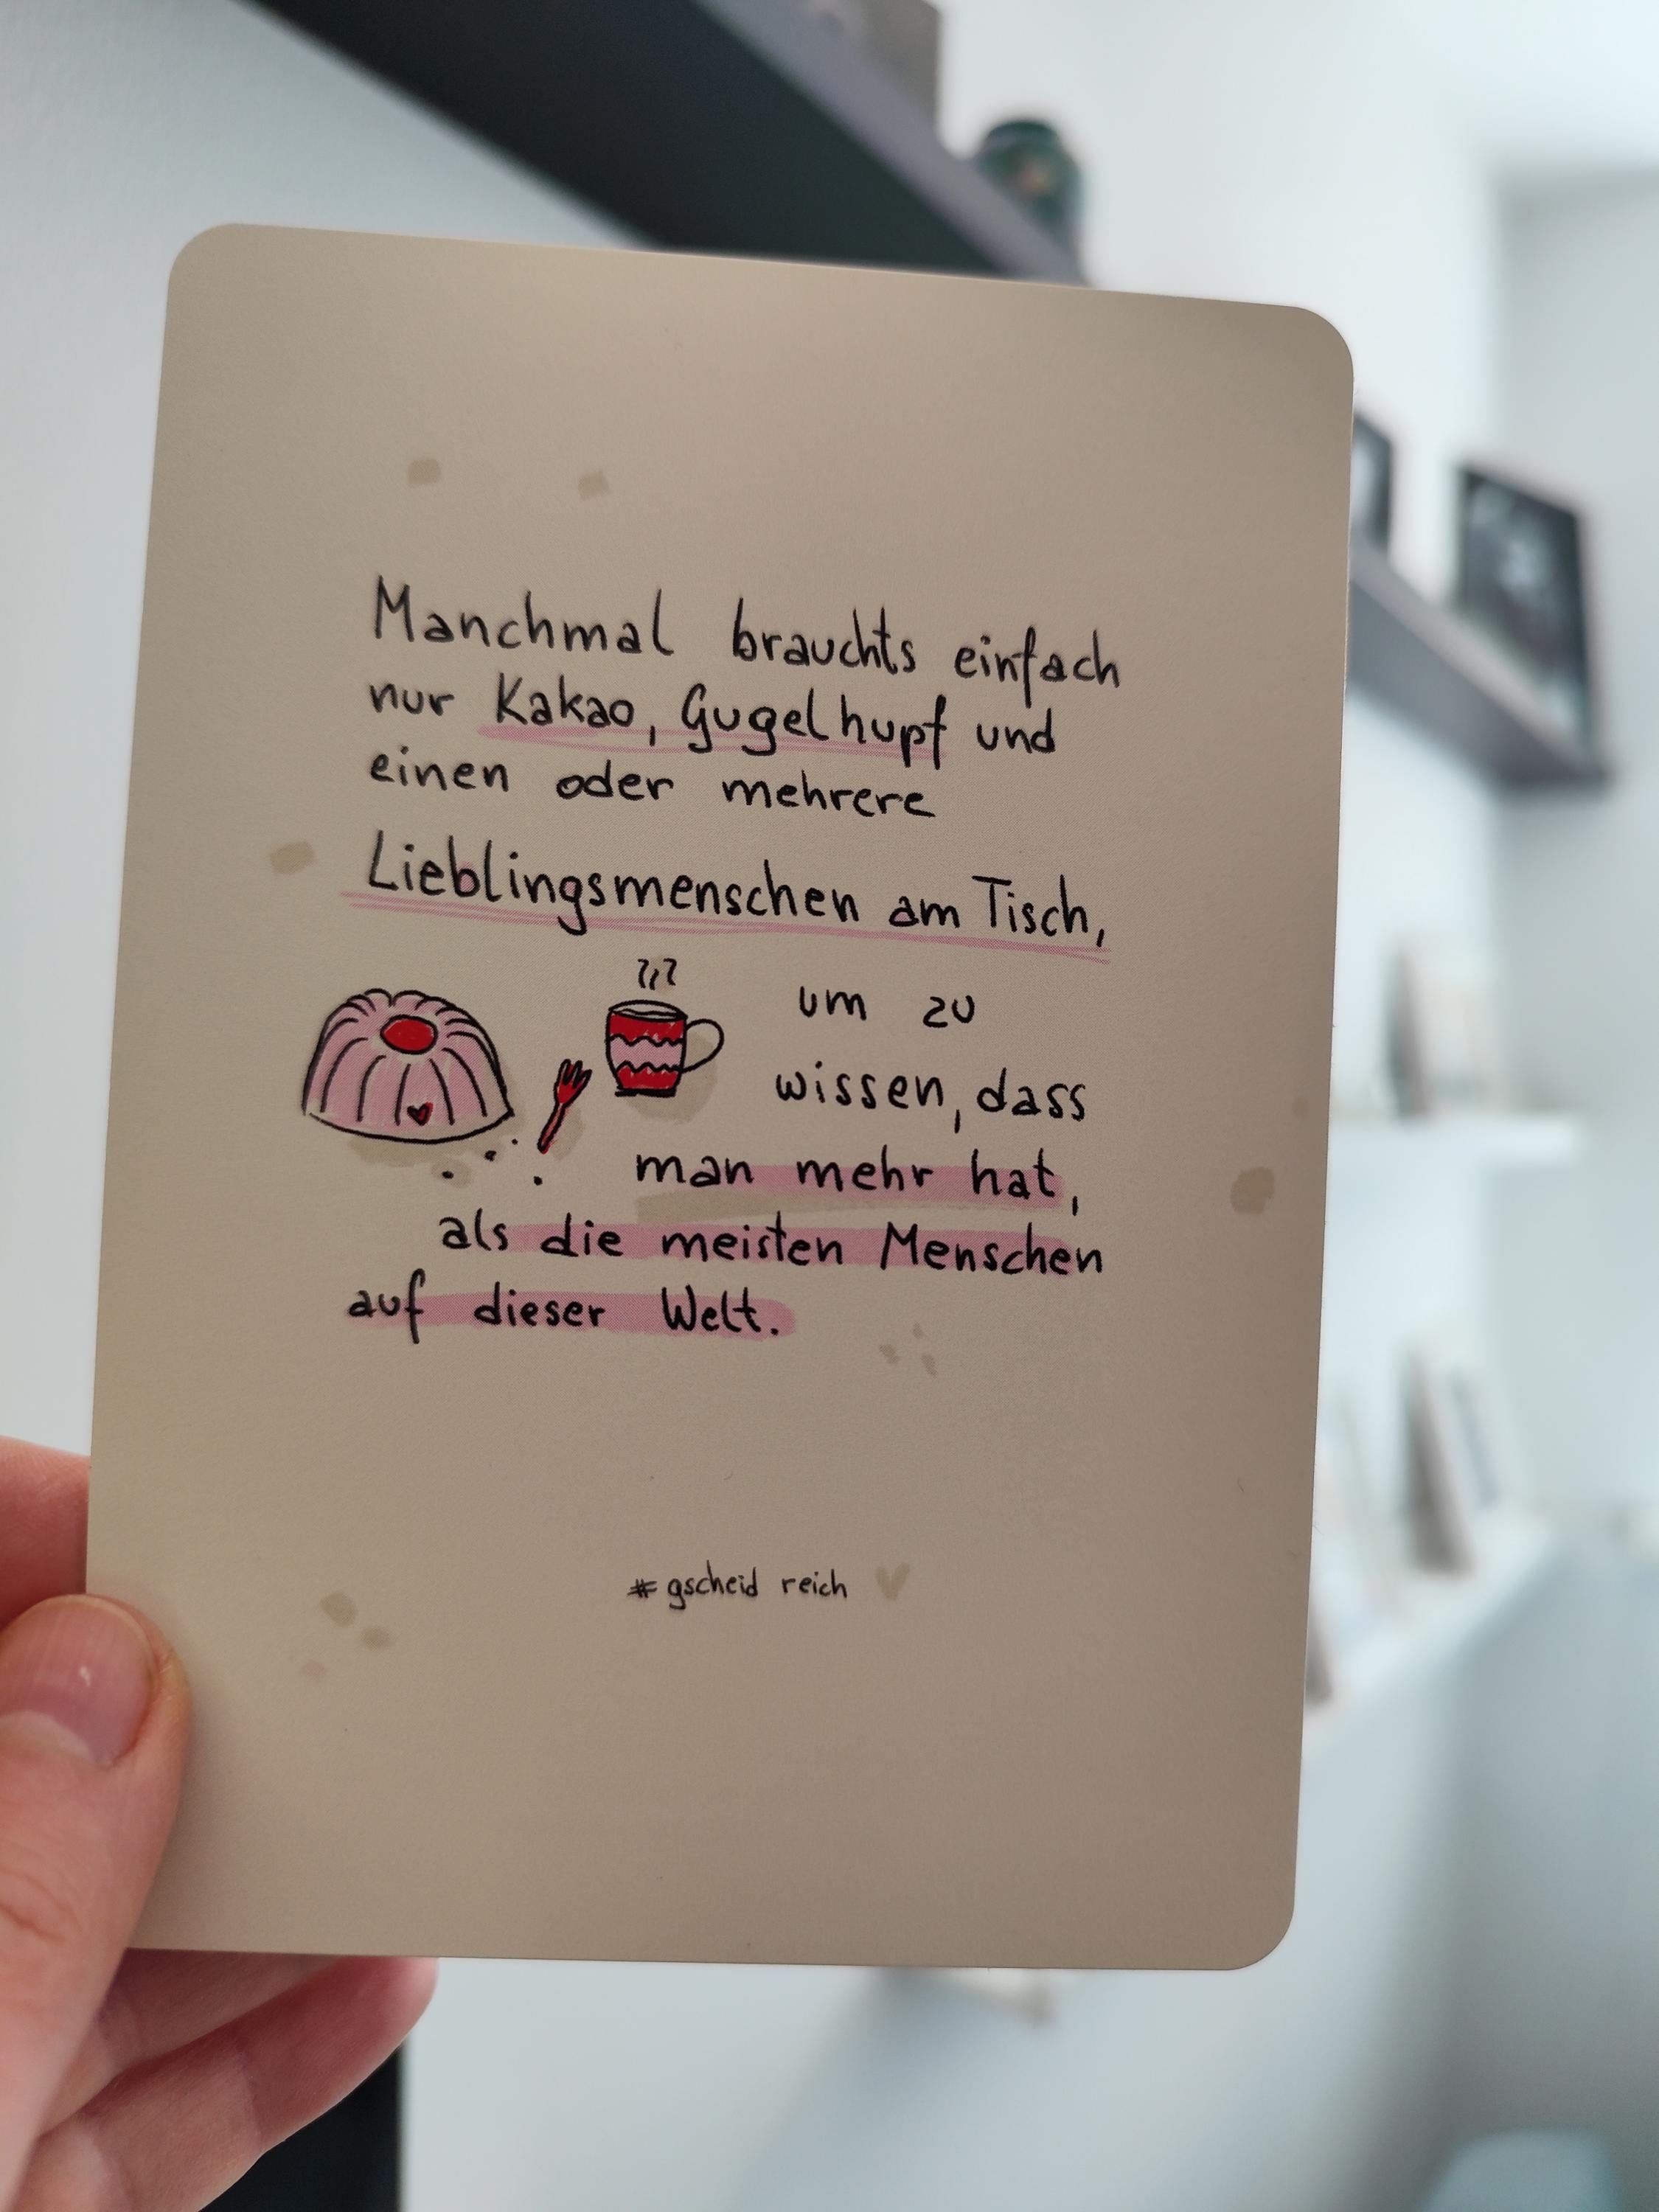 Manchmal brauchts einfach
nur Kakao, Gugelhupf und
einen oder mehrere
Lieblingsmenschen am Tisch,
um zu
wissen, dass
man mehr hat,
als die meisten Menschen
auf dieser Welt.
#gscheid reich